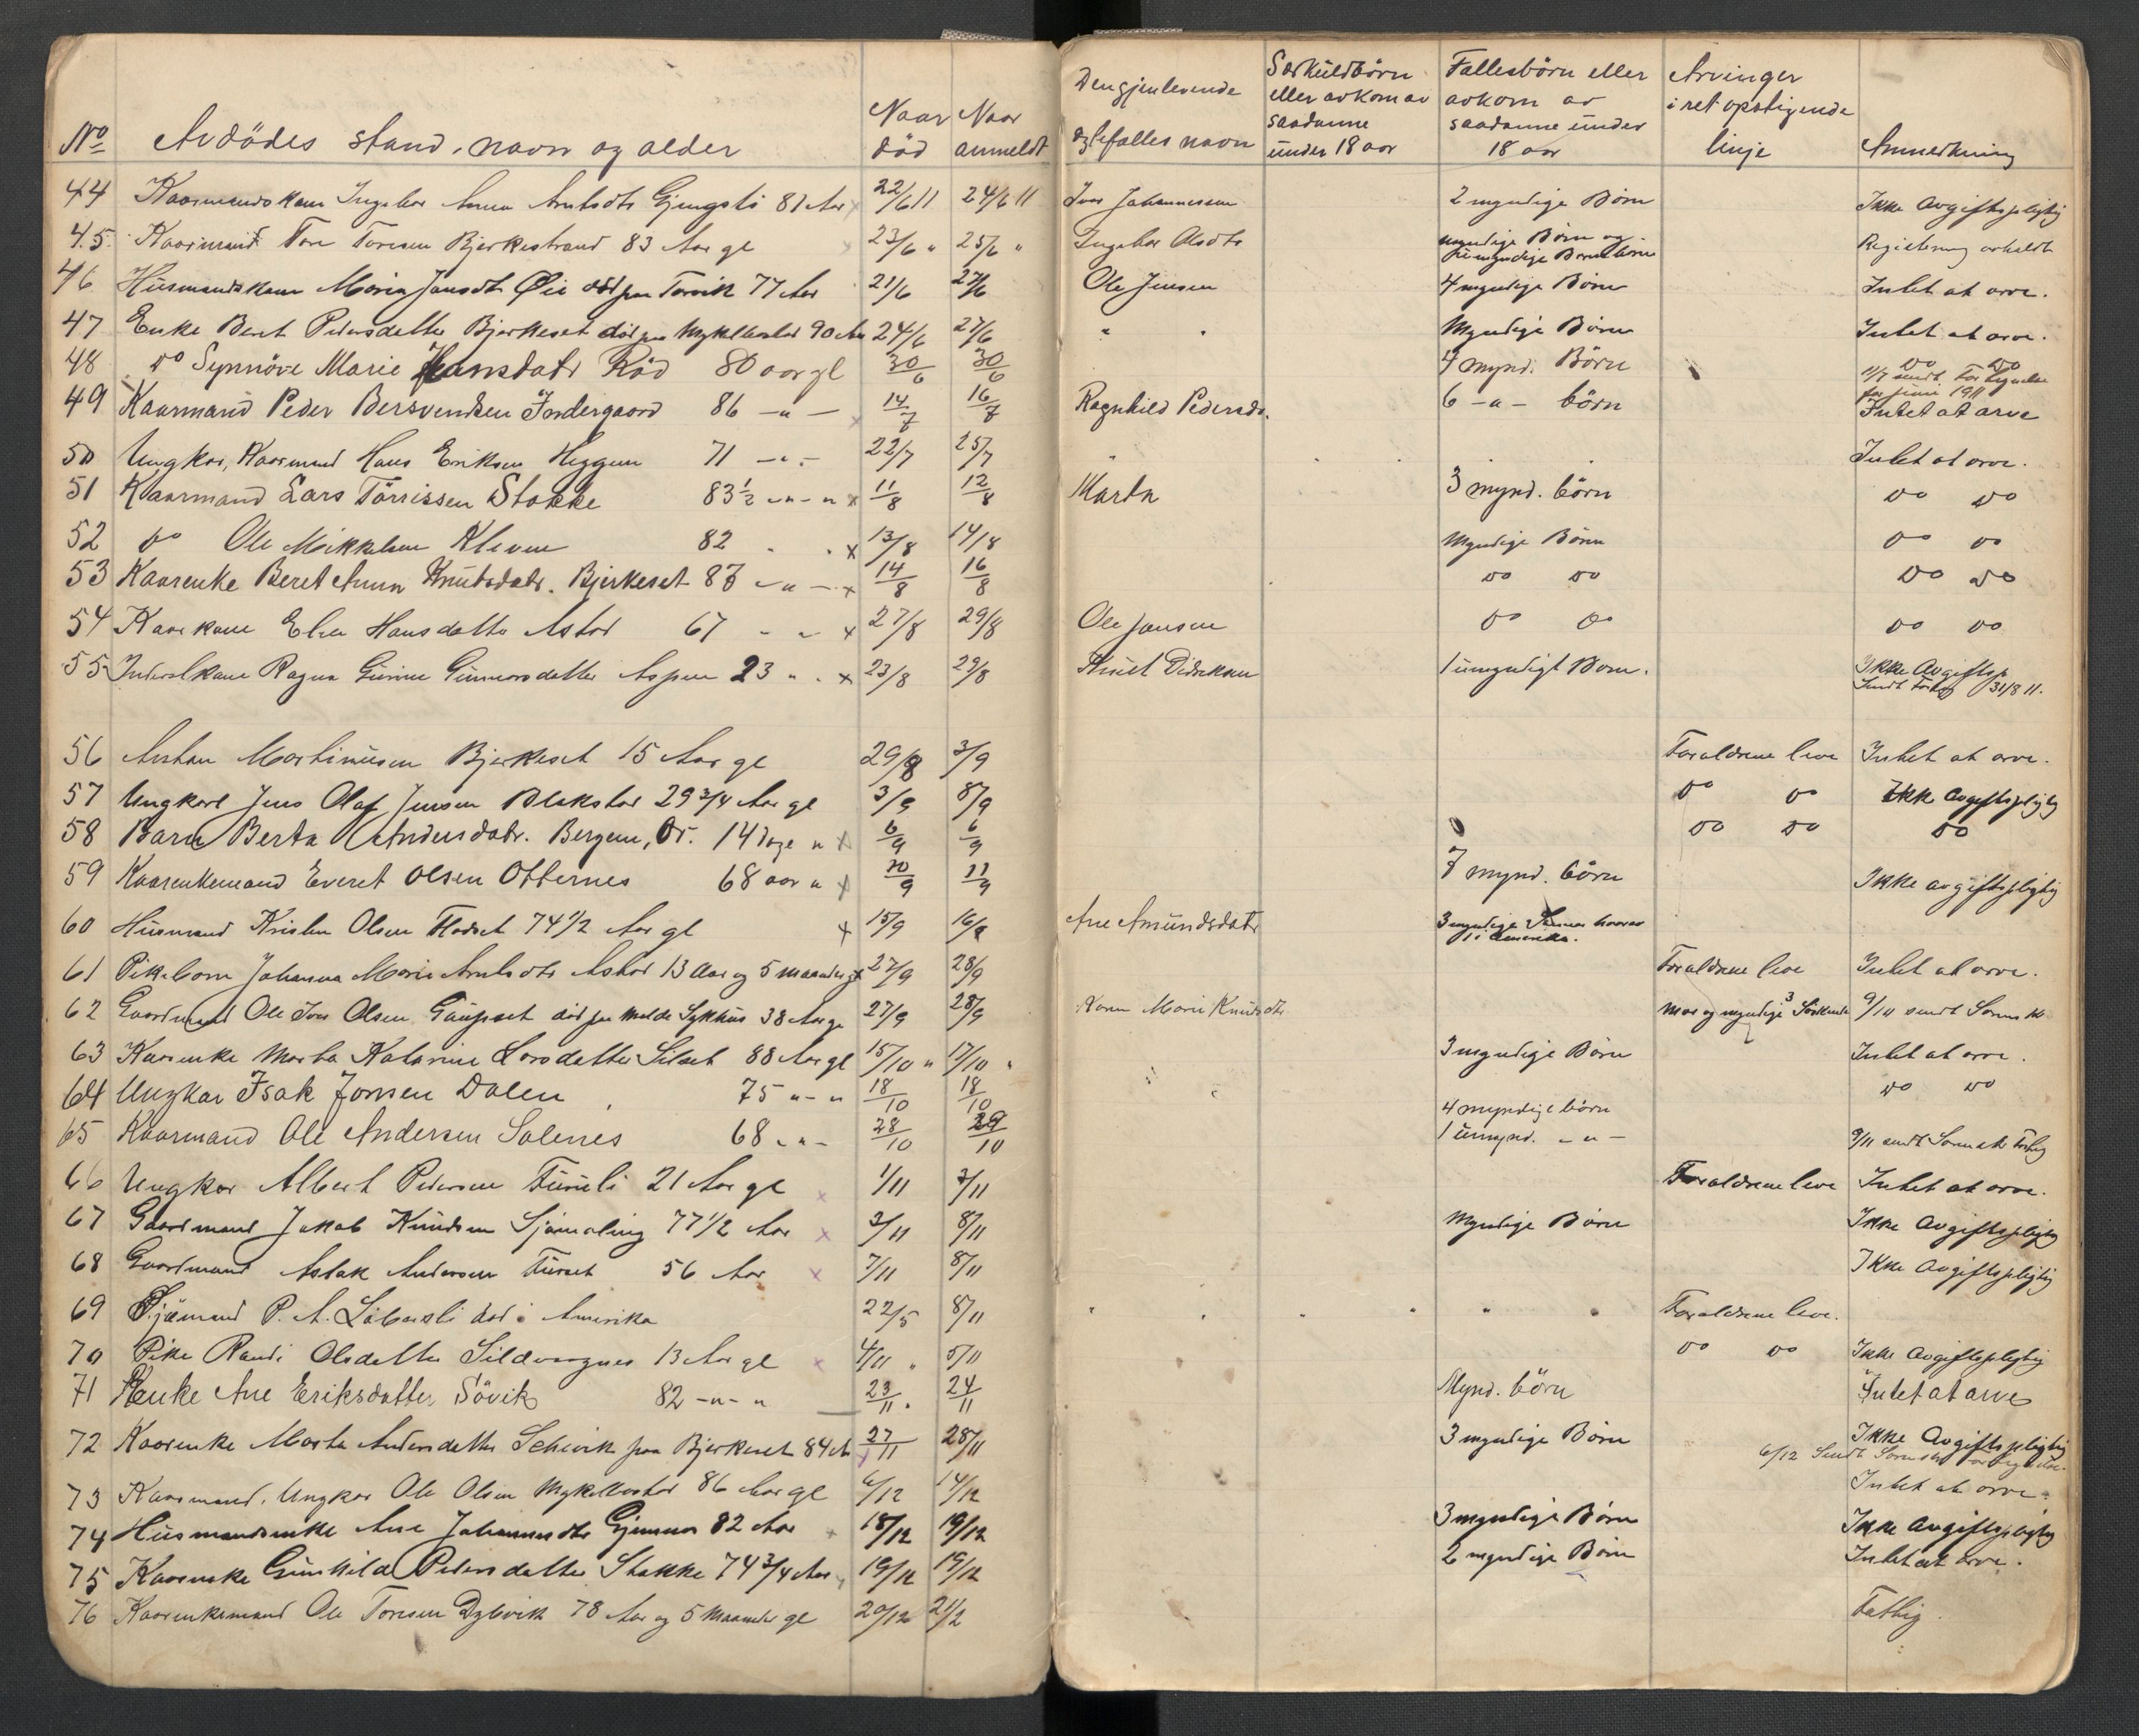 No Avdödes stand, navn og alder Naar död Naar anmeldt Den gjenlevende egtefælles navn Særkuldbörn eller avkom av saadanne under 18 aar Fællesbörn eller avkom av saadanne under 18 aar Arvinger i ret opstigende linje Anmerkning
44 Kaarmandskone Ingebor Anna Arntsdtr Gjengstö 81 Aar 22/6 11 24/6 11 Iver Johannessen 2 myndige Börn Ikke Avgiftspligtig
45 Kaarmand Tore Toresen Bjerkestrand 83 Aar gl 23/6 " 25/6 " Ingebor Olsdtr myndige Börn og umyndige Barnebörn Registrering avholdt
46 Husmandskone Maria Jansdtr Öie död paa Torvik 77 Aar 21/6 27/6 Ole Jensen 4 myndige Börn Intet at arve.
47 Enke Beret Pedersdatter Bjerkeset död paa Myklebostad 90 Aar 24/6 27/6 " " Myndige Börn Intet at arve.
48 do Synnöve Marie Hansdatr Röd 80 aar gl 30/6 30/6 4 mynd. Börn do do
11/7 sendt Fortegnelse for juni 1911
49 Kaarmand Peder Bersvendsen Jordergaard 86 -"- 14/7 16/7 Ragnhild Pedersdr. 6 -"- börn Intet at arve
50 Ungkar, Kaarmand Hans Eriksen Heggem 71 -"- 22/7 25/7 " Intet at arve.
51 Kaarmand Lars Törrissen Stokke 83½ -"- " x 11/8 12/8 Marta 3 mynd. börn do do
52 do Ole Mikkelsen Kleven 82 " " x 13/8 14/8 Myndige Börn do do
53 Kaarenke Beret Anna Knutsdatr. Bjerkeset 83 -"- x 14/8 16/8 do do do do
54 Kaarkone Elen Hansdatter Astad 67 - " x 27/8 29/8 Ole Jansen do do do do
55 Inderstkone Ragna Gurine Gunnarsdatter Aspen 23 " " x 23/8 29/8 Knut Didriksen 1 umyndigt Barn. Ikke Avgiftsp
Sendt Forteg 31/8 11.
56 Anton Martinusen Bjerkeset 15 Aar gl 29/8 3/9 Foraldrene leve Intet at arve.
57 Ungkarl Jens Olaf Jensen Blakstad 29 3/4 Aar gl 3/9 8/9 do do Ikke Avgiftspligtig
58 Barn Berta Andersdatr. Bergem, Ör. 14 dage " x 6/9 6/9 do do do
59 Kaarenkemand Evert Olsen Otternes 68 aar " x 10/9 11/9 7 mynd. börn Ikke avgiftspligtig
60 Husmand Kristen Olsen Flodset 74 1/2 Aar gl x 15/9 16/9 Ane Amundsdatr 3 myndige Sönner hvorav 1 i Amerika.
61 Pikebarn Johanna Marie Arntsdtr Astad 13 Aar og 5 maaneder gl x 27/9 28/9 Foraldrene leve Intet at arve.
62 Gaardmand Ole Iver Olsen Gaupset död paa Molde Sykhus 38 Aar gl 27/9 28/9 Karen Marie Knutsdtr mor og myndige 3 Söskende 9/10 sendt Sorensk
63 Kaarenke Marta Katarine Larsdatter Silset 88 Aar gl 15/10 " 17/10 " 3 myndige Börn Intet at arve.
64 Ungkar Isak Jonsen Dalen 75 "-" 18/10 18/10 do do
65 Kaarmand Ole Andersen Solenes 68 -"- 28/10 29/10 4 myndige börn
1 umynd. -"- 9/11 sendt Sorensk Forteg
66 Ungkar Albert Pedersen Furuli 21 Aar gl x 1/11 3/11 Foraldrene leve Intet at arve.
67 Gaardmand Jakob Knudsen Sjömæling 77 1/2 Aar x 3/11 8/11 Myndige Börn Ikke Avgiftspligtig
68 Gaardmand Aslak Andersen Furset 56 Aar x 7/11 8/11 Ikke Avgiftspligtig
69 Sjömand P. A. död i Amerika 22/5 8/11 " " " " " " Foraldrene leve.
70 Pike Randi Olsdatter Sildvaagnes 13 Aar gl x 4/11 " 5/11 do do Ikke Avgiftspligtig
71 Enke Ane Eriksdatter Sövik 82 -"- " 23/11 " 24/11 Mynd. börn Intet at arve
72 Kaarenke Marta Andersdatter Schevik paa Bjerkeset 84 Aar x 27/11 28/11 3 myndige Börn Ikke Avgiftspligtig
6/12 Sendt Sorensk Fortegnelse.
73 Kaarmand, Ungkar Ole Olsen Myklebostad 86 Aar gl 6/12 14/12 Intet at arve.
74 Husmandsenke Ane Johannesdtr Gjemnes 82 Aar x 18/12 19/12 3 myndige Börn Ikke Avgiftspligtig
75 Kaarenke Gunhild Pedersdatter Stokke 74 3/4 Aar x 19/12 19/12 2 myndige Börn Intet at arve.
76 Kaarenkemand Ole Toresen Dybvik 78 Aar og 5 Maaneder gl 20/12 21/2 Fattig.